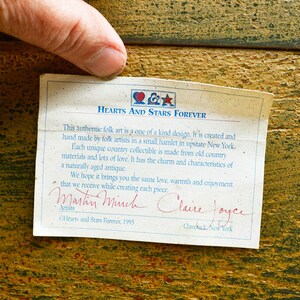 HEARTS AND STARS FOREVER
This authentic folk art is a one of a kind design. It is created and
hand made by folk artists in a small hamlet in upstate New York.
Each unique country collectible is made from old country
materials and lots of love. It has the charm and characteristics of
a naturally aged antique.
We hope it brings you the same love, warmth and enjoyment
that we receive while creating each piece.
Claire Joyce
Artists
©Hearts and Stars Forever, 1995
Claverack, New York